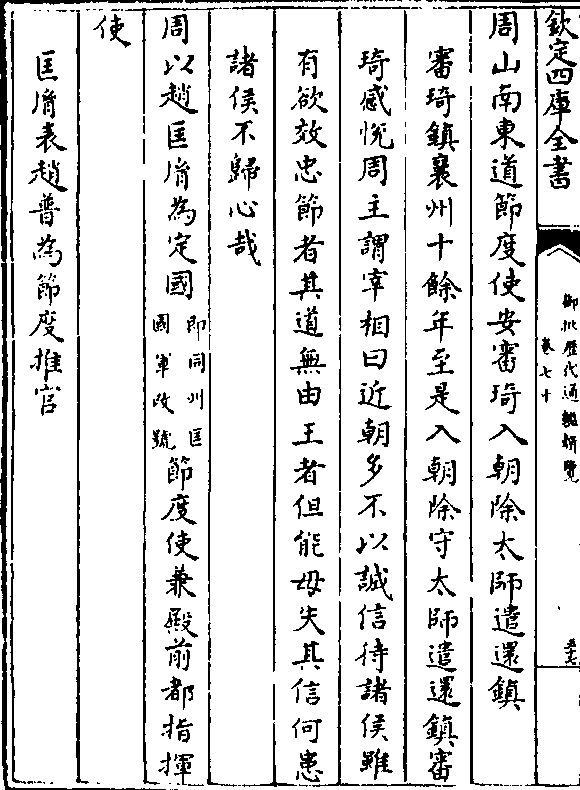 欽定四庫全書
御批歷代通鑑輯覽
卷七十
周山南東道節度使安審琦入朝除太師遣還鎮
審琦鎮襄州十餘年至是入朝除守太師遣還鎮審
琦感悅周主謂宰相曰近朝多不以誠信待諸侯雖
有欲效忠節者其道無由王者但能毋失其信何患
諸侯不歸心哉
周以趙匡𦙍為定國即同州匡國軍改號節度使兼殿前都指揮
使
匡𦙍表趙普為節度推官